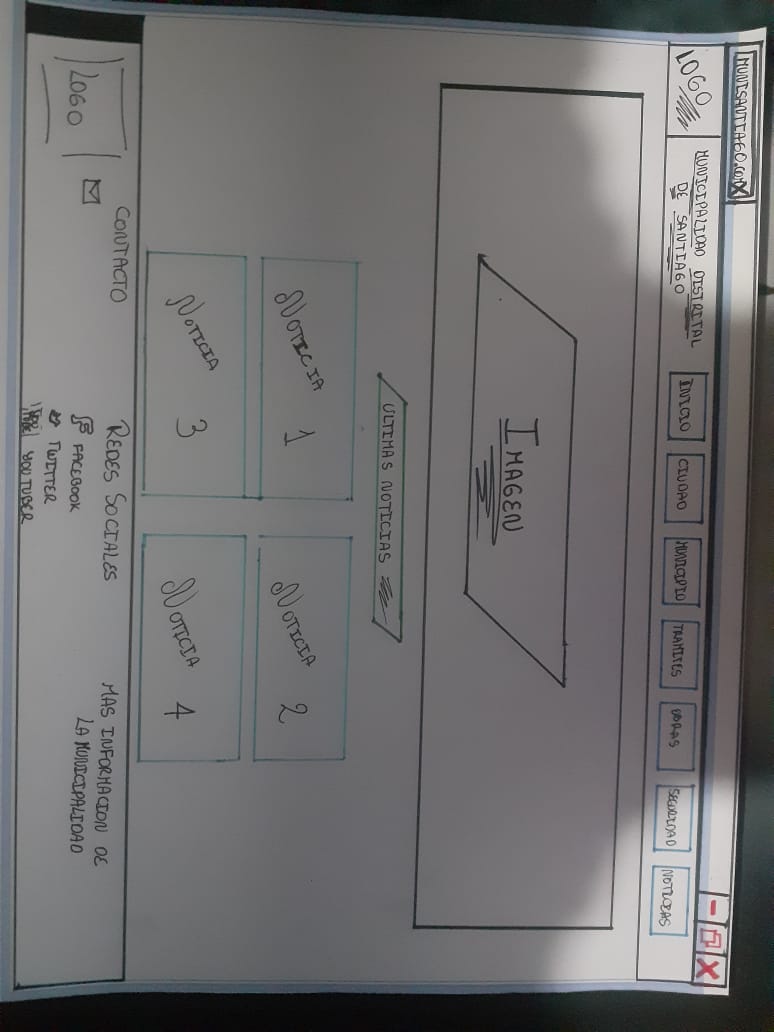 MUNISANTIAGO.com X
LOGO
MUNICIPALIDAD DISTRITAL
DE SANTIAGO
INICIO
CIUDAD
MUNICIPIO
TRAMITES
OBRAS
SEGURIDAD
NOTICIAS
IMAGEN
ULTIMAS NOTICIAS
NOTICIA 1
NOTICIA 2
NOTICIA 3
NOTICIA 4
LOGO
CONTACTO
REDES SOCIALES
FACEBOOK
TWITTER
YOUTUBER
MAS INFORMACION DE
LA MUNICIPALIDAD